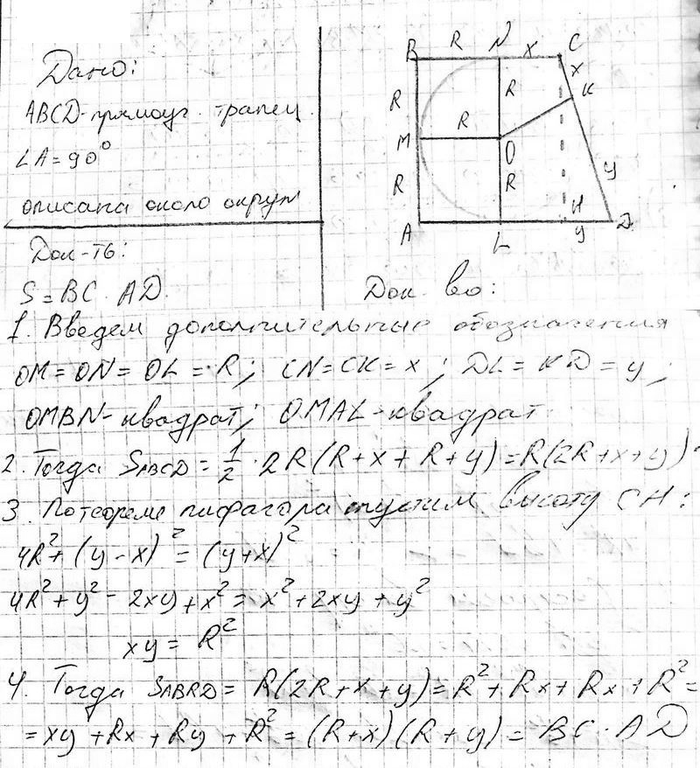 Дано:
ABCD-прямоуг. трапец.
∠A=90°
описана около окруж
Док-ть:
S=BC·AD.
B R N x C
x
K
R R
M R O y
R R
A L H y D
Док. во:
1. Введем дополнительные обозначения
OM=ON=OL=R; CN=CK=x; DL=KD=y;
OMBN-квадрат; OMAL-квадрат
2. Тогда SABCD=1/2·2R(R+x+R+y)=R(2R+x+y).
3. По теореме пифагора опустим высоту CH:
4R²+(y-x)²=(y+x)²
4R²+y²-2xy+x²=x²+2xy+y²
xy=R²
4. Тогда SABRD=R(2R+x+y)=R²+Rx+Rx+R²=
=xy+Rx+Ry+R²=(R+x)(R+y)=BC·AD